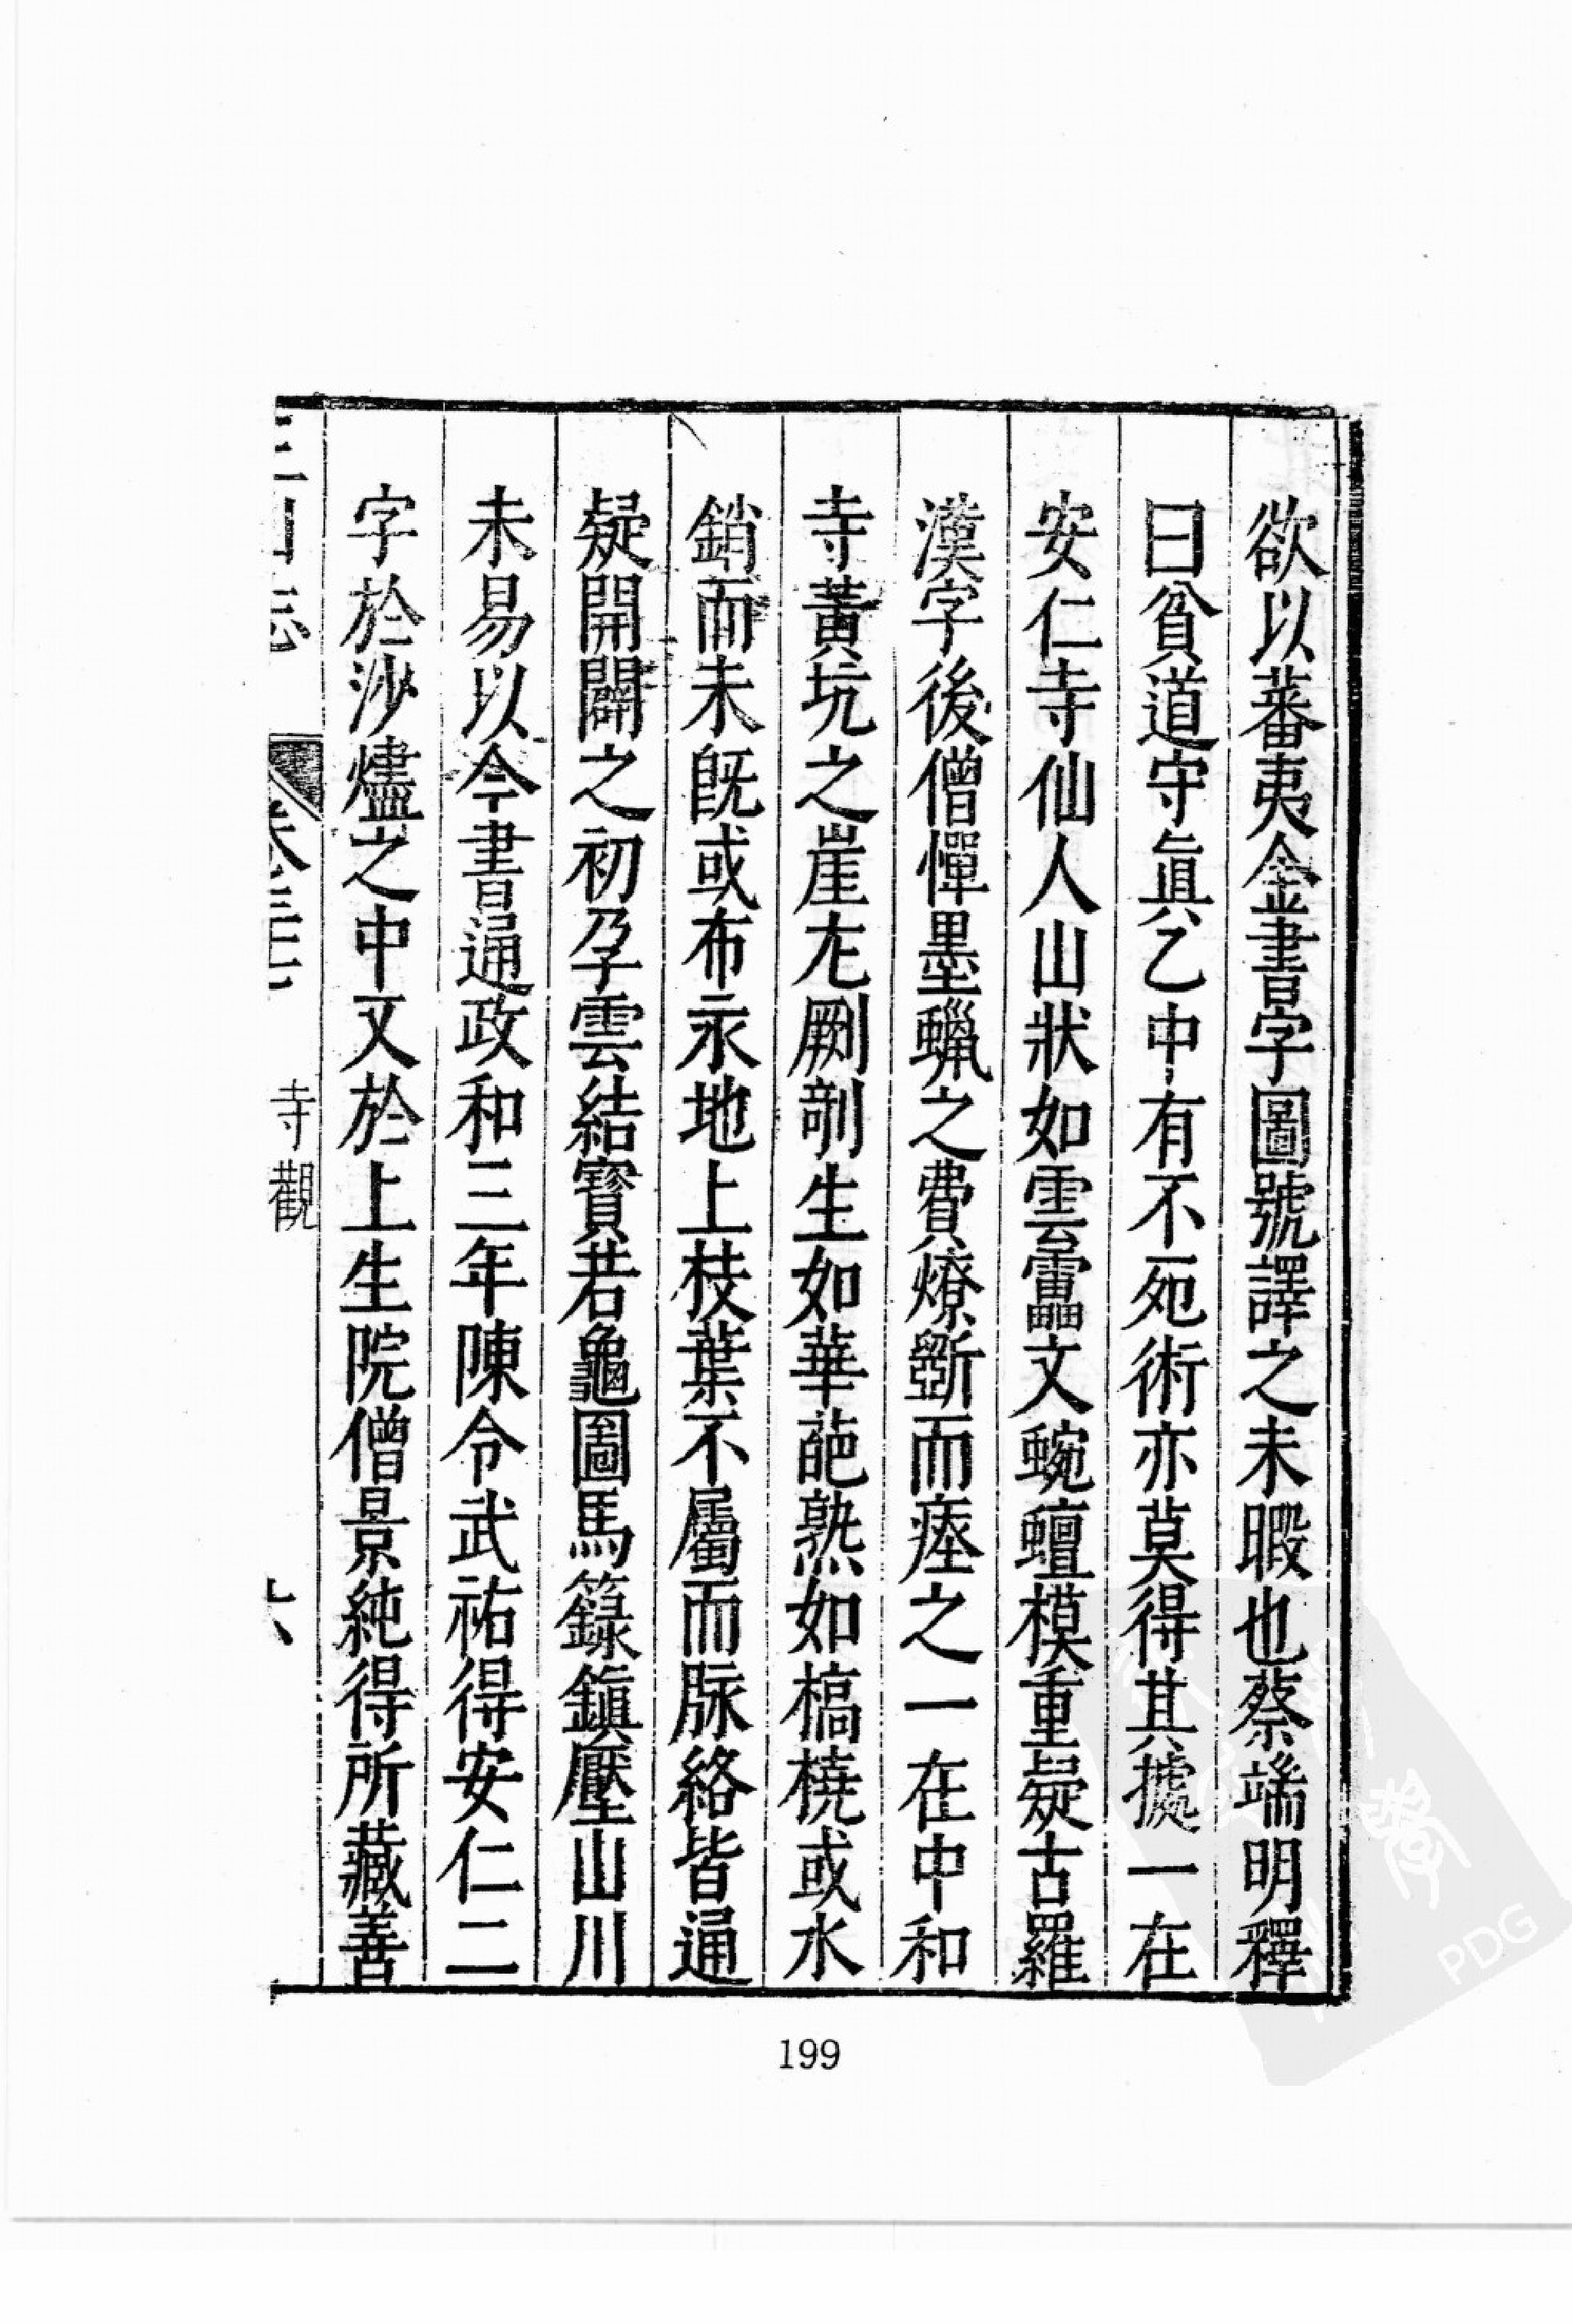 欲以蕃夷金書字圖號譯之未暇也蔡端明釋
曰貧道守眞乙中有不死術亦莫得其據一在
安仁寺仙人山狀如雲靁文蜿蟺模重疑古羅
漢字後僧憚墨蠟之費燎斵而瘞之一在中和
寺黃坑之崖尢劂剞生如華葩熟如槁橈或水
銷而未旣或布永地上枝葉不屬而脉絡皆通
疑開闢之初孕雲結寶若龜圖馬籙鎭壓山川
未易以今書通政和三年陳令武祐得安仁二
字於沙燼之中又於上生院僧景純得所藏善
三山志 卷三 寺觀 六
199
PDG